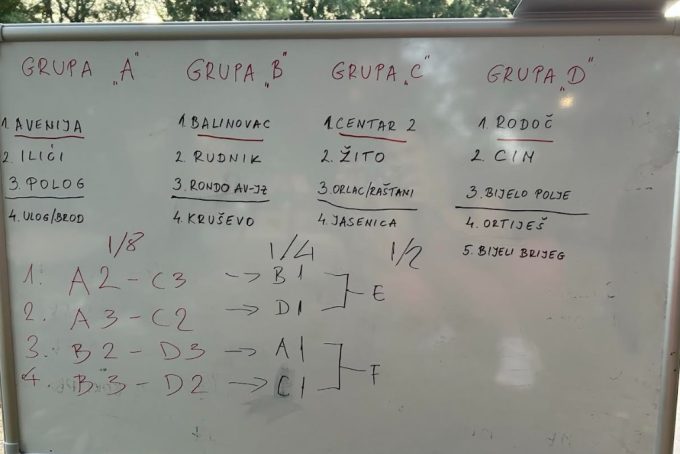 GRUPA „A" GRUPA „B" GRUPA „C" GRUPA „D"
1. AVENIJA 1. BALINOVAC 1. CENTAR 2 1. RODOČ
2. ILIĆI 2. RUDNIK 2. ŽITO 2. CIM
3. POLOG 3. RONDO AV-JZ 3. ORLAC/RAŠTANI 3. BIJELO POLJE
4. VLOG/BROD 4. KRUŠEVO 4. JASENICA 4. ORTIJEŠ
5. BIJELI BRIJEG
1/8 1/4 1/2
1. A2 - C3 → B1
E
2. A3 - C2 → D1
3. B2 - D3 → A1
F
4. B3 - D2 → C1